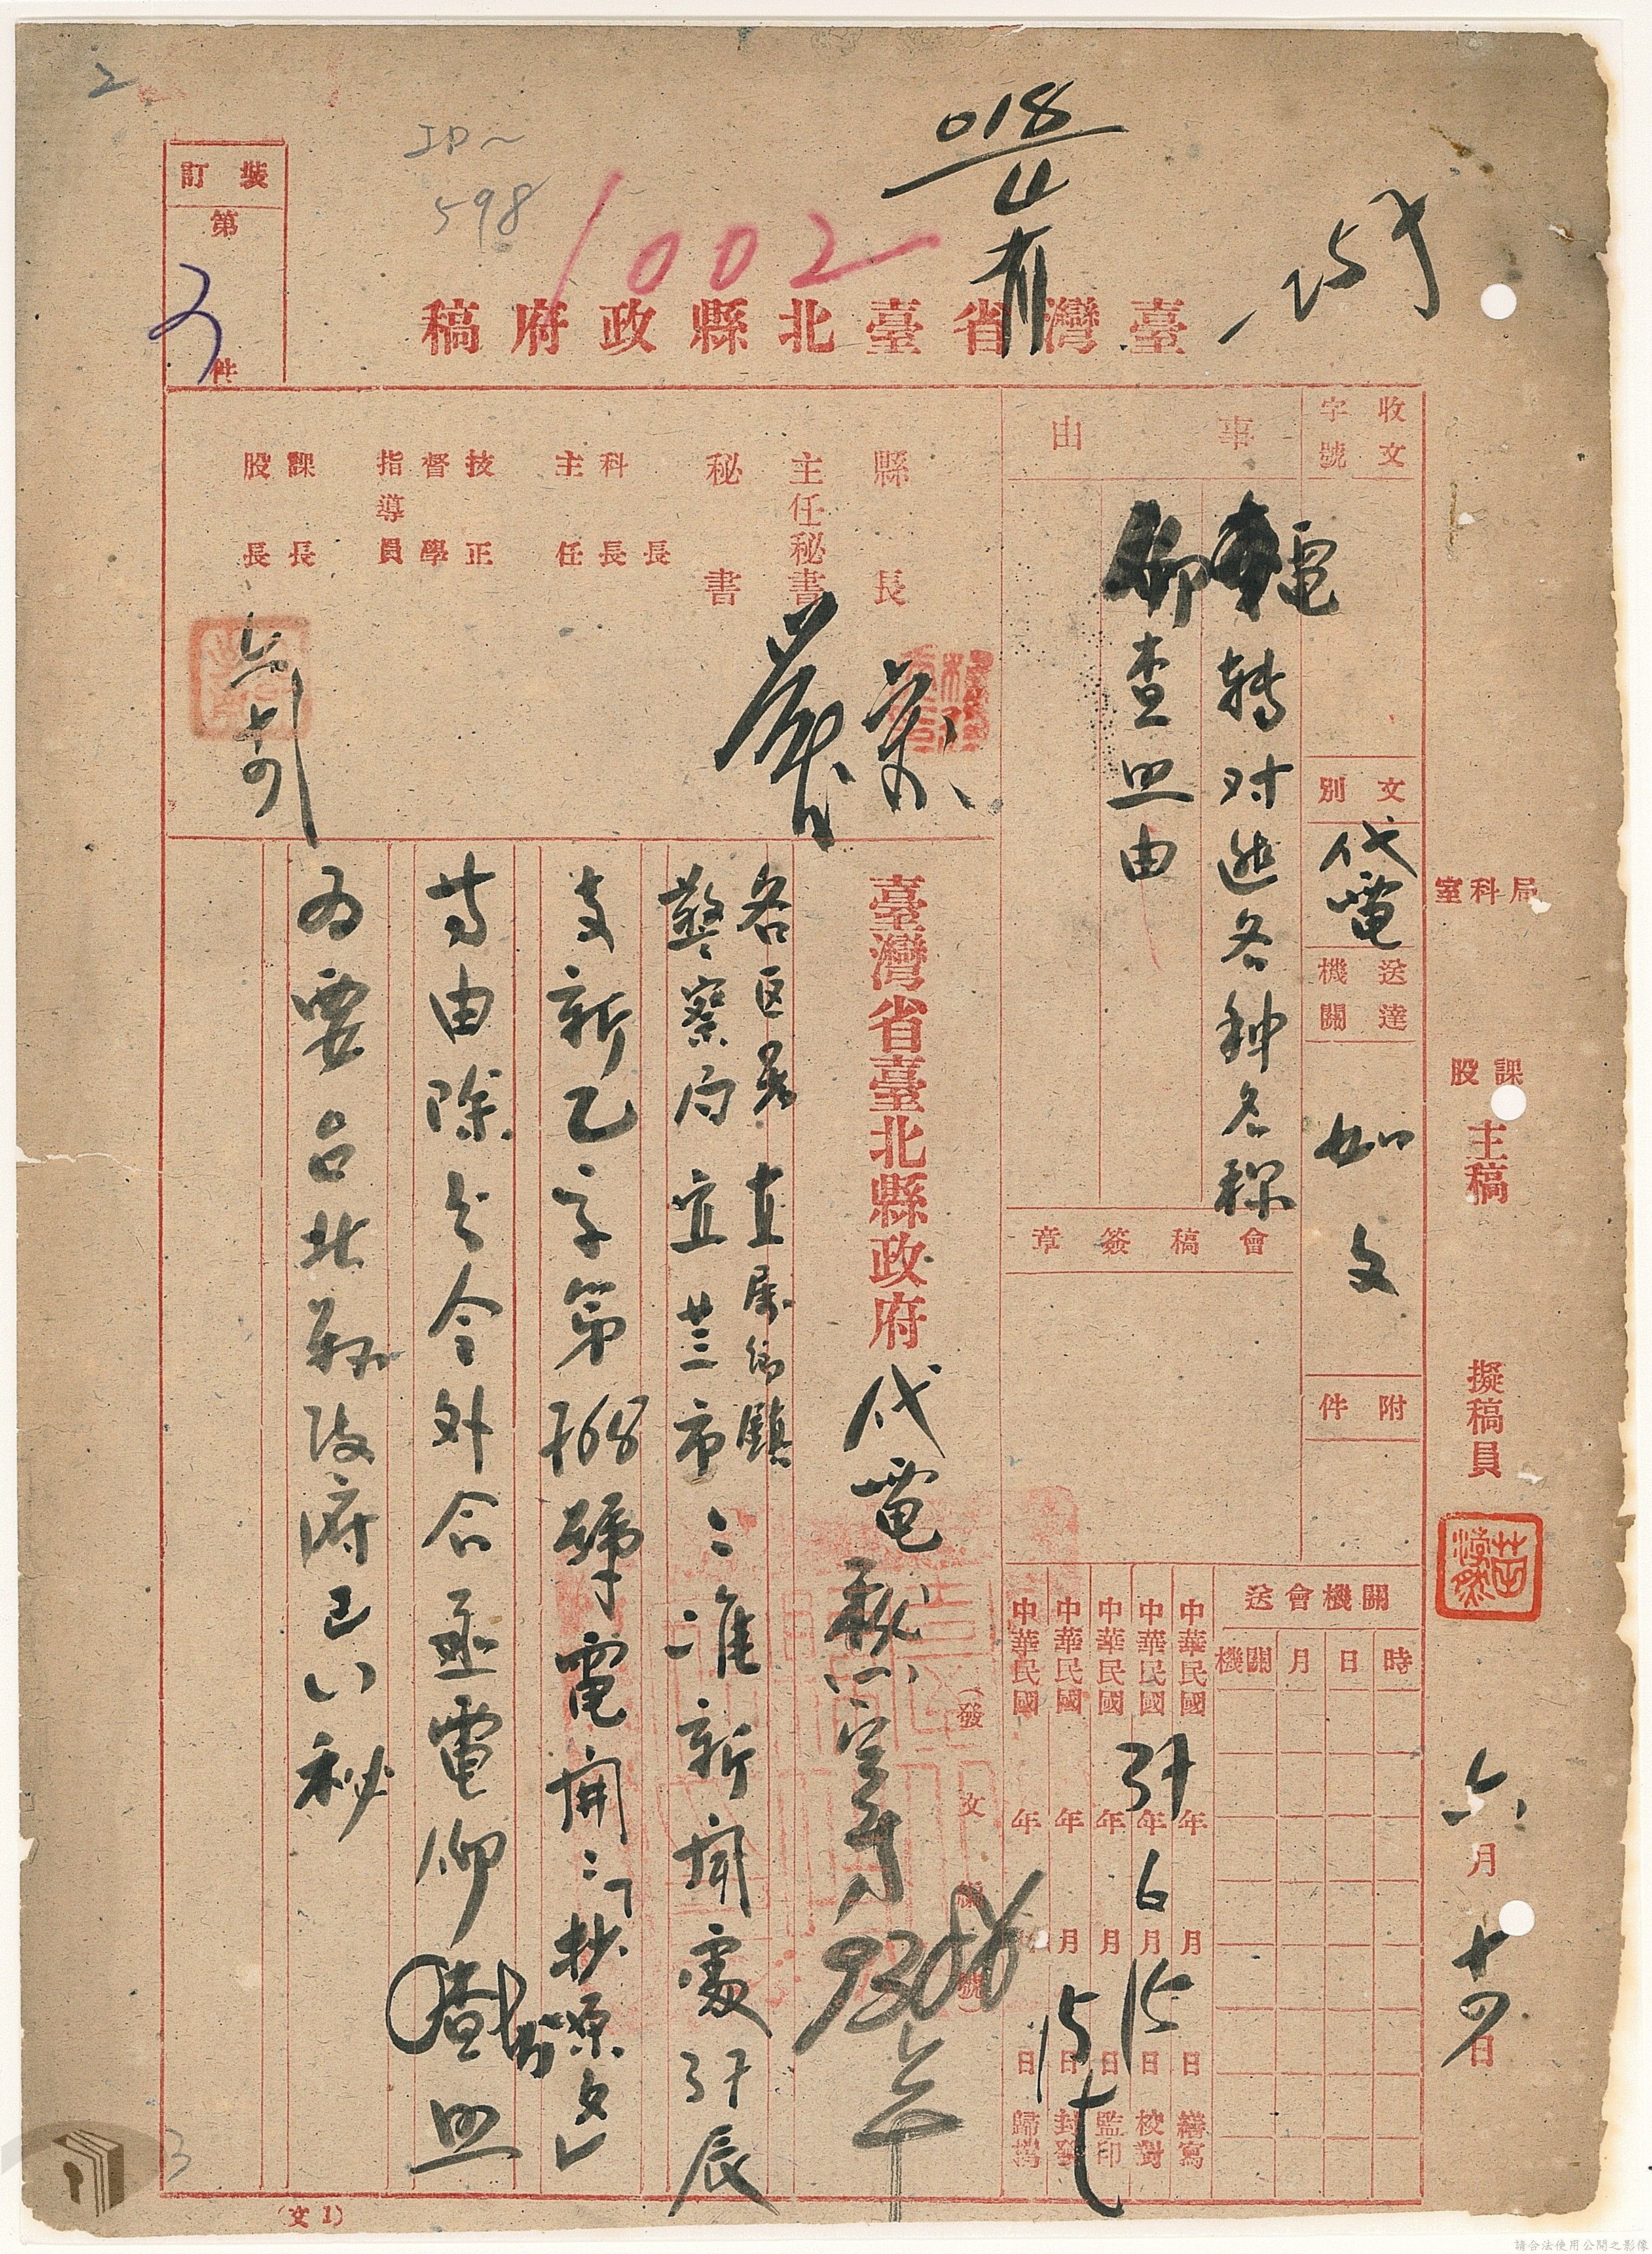 2
ID~
598
1002
018
4
裝訂
第
件
臺灣省臺北縣政府稿
收文
字號
文別
代電
送達
機關
如文
附件
事由
電轉对进各种名称
仰查照由
會稿簽章
縣長
主任秘書
秘書
科長
主任
技正
督學
指導員
課長
股長
局科室
課股
主稿
擬稿員
六月十四日
關機會送
時
日
月
關機
中華民國 37年6月15日 繕寫
中華民國 年 月 日 校對
中華民國 年 月 日 監印
中華民國 年 月 15日 封發
中華民國 年 月 日 歸檔
臺灣省臺北縣政府代電
(發文編號)
各区署直屬鄉鎮
警察局 宜兰市:准新聞處37辰
支新乙字第768號電開:「抄原文」
等由除分令外合亟電仰查照
为要台北縣政府已 秘
(文1)
3
請合法使用公開之影像